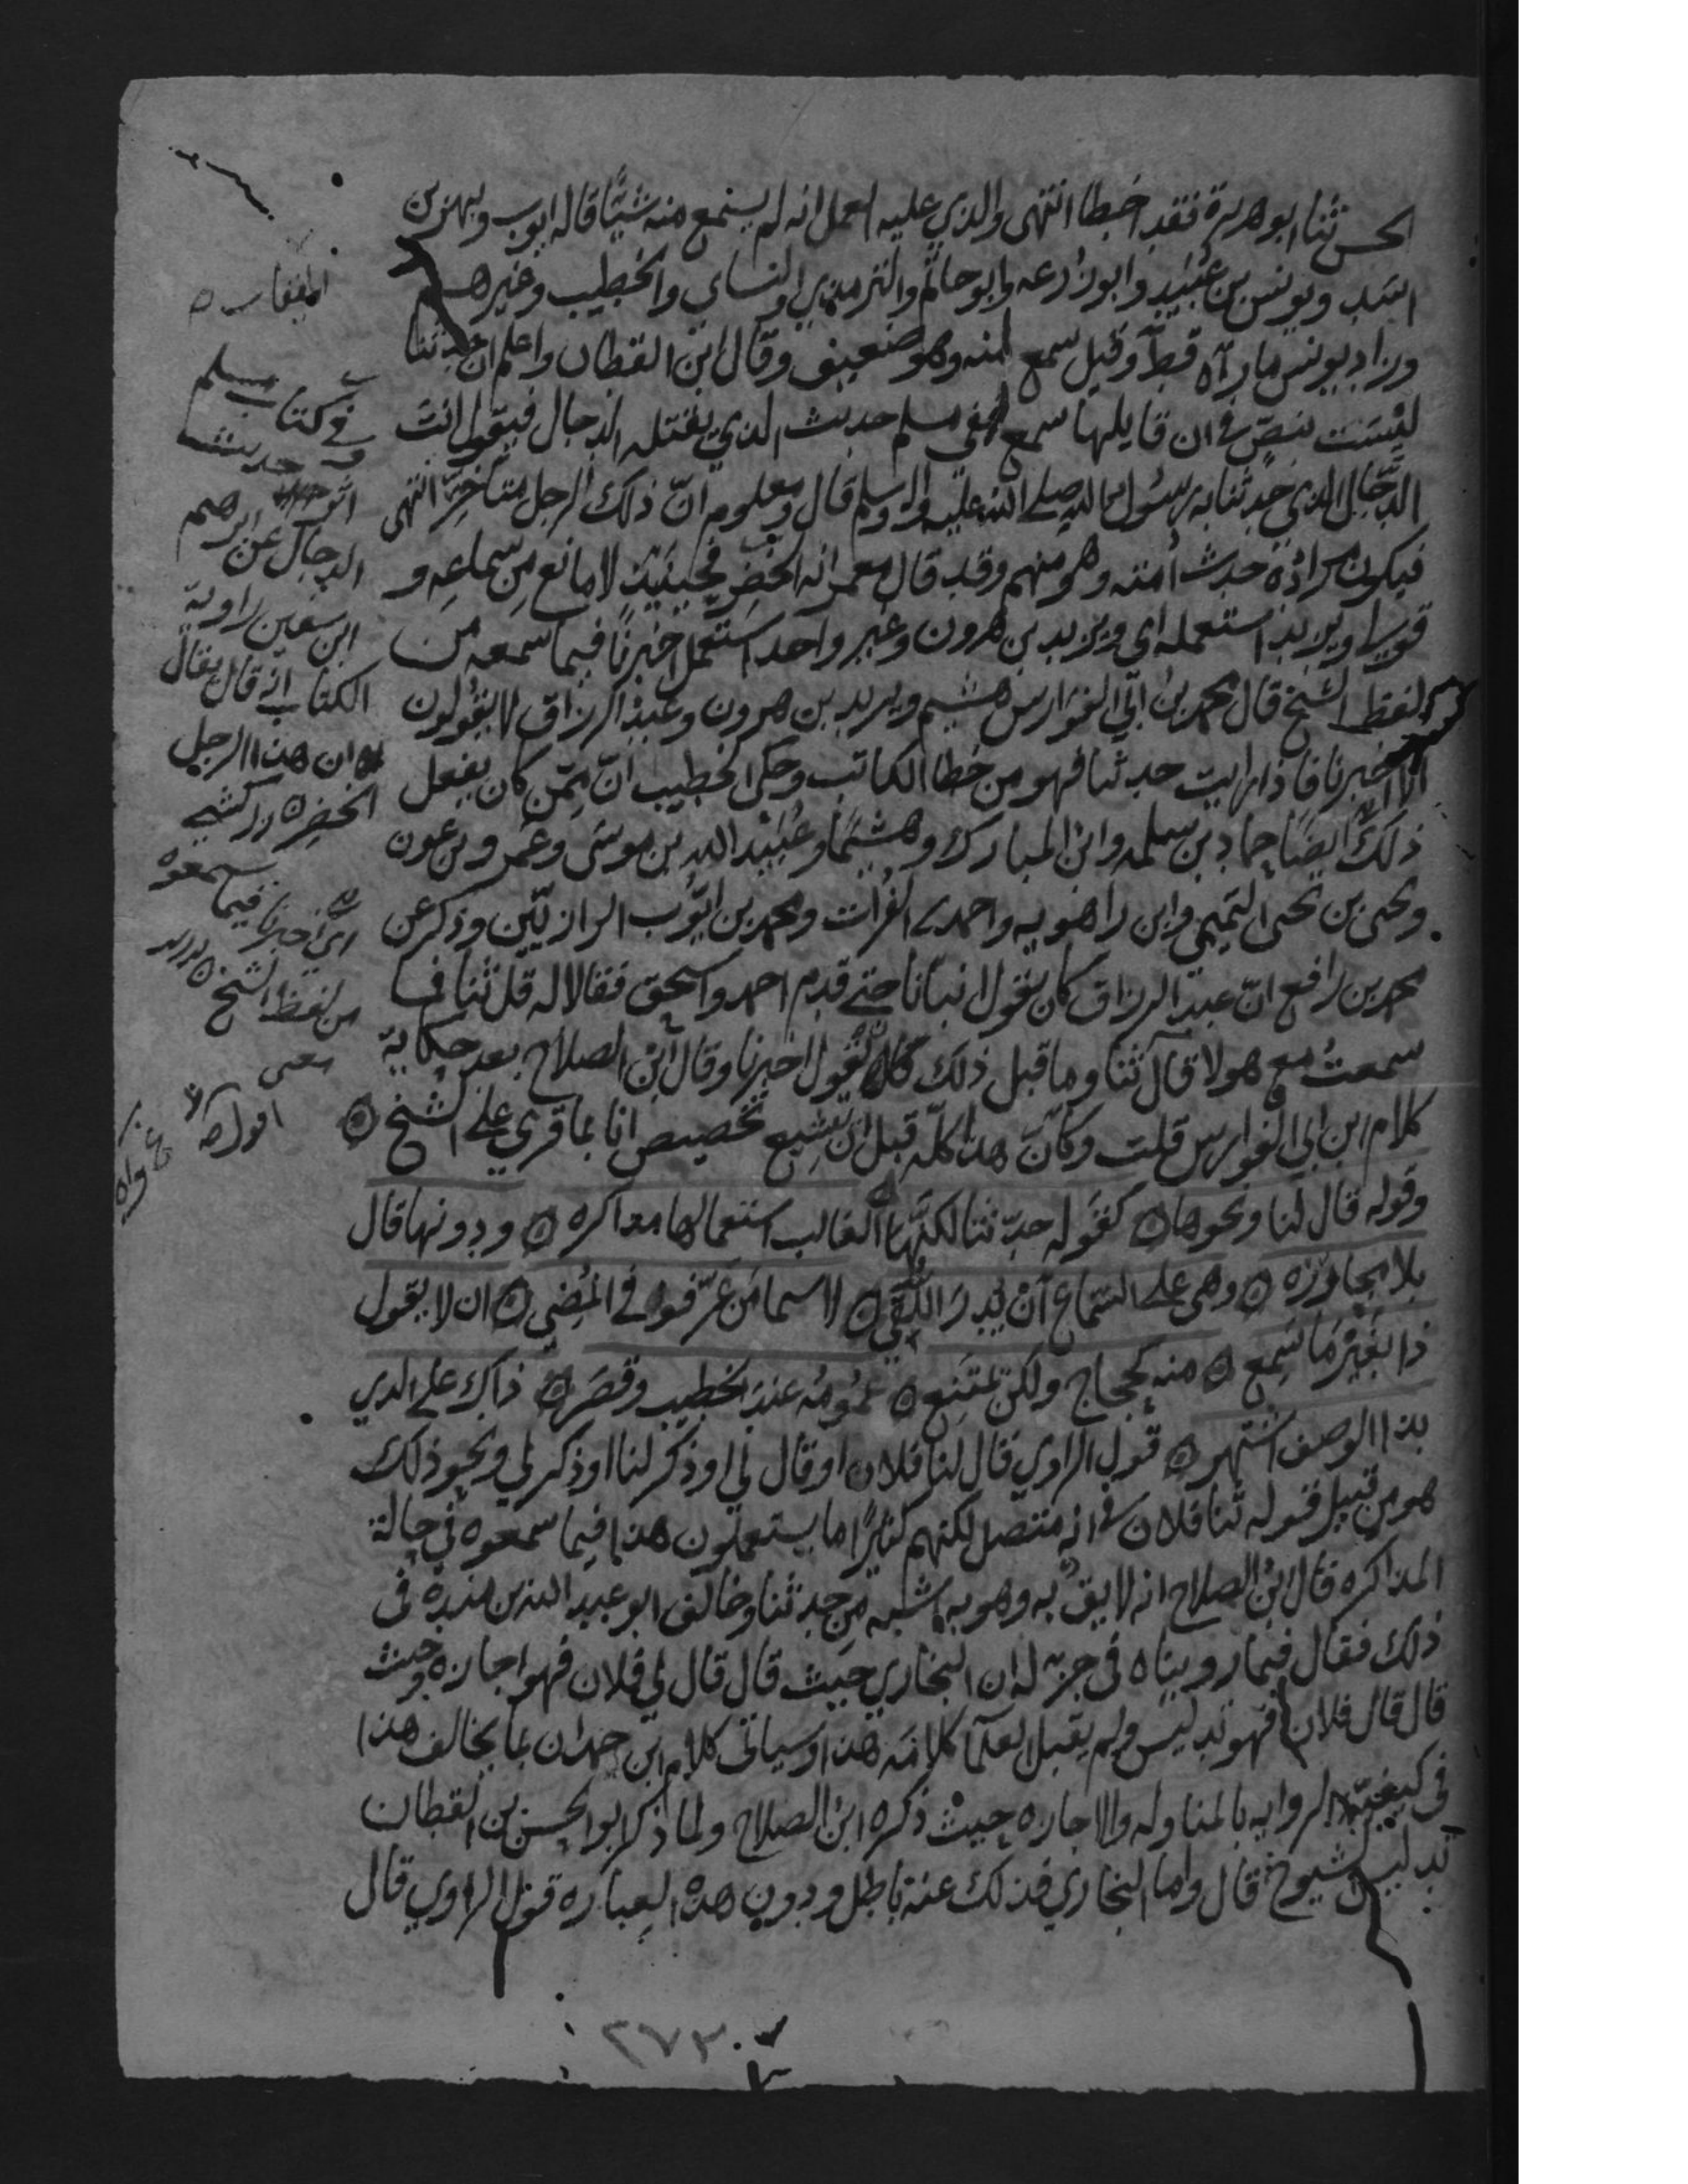 الحسن ثنا ابو هريرة فقد اخطا انتهى والذي عليه العمل انه لم يسمع منه شيًا قاله ايوب وبهز بن
اسد ويونس بن عُبَيد وابو زُرعه وابو حاتم والترمذي والنساي والخطيب وغيرهم
وزاد يونس ما رآه قط وقيل سمع منه وهو ضعيف وقال ابن القطان واعلم ان حدثنا
ليْسَت بنصّ في ان قايلها سمع ففي مسلم حديث الذي يقتله الدجال فيقول انت
الدّجال الذي حدثنا به رسُول الله صلى الله عليه واله وسلم قال ومعلوم انّ ذلك الرجل متاخر انتهى
فيكون مرادُه حدث امته وهو منهم وقد قال معمر انه الخضر فحينيذ لا مانع من سماعه و
قوله ويزيد استعمله اي ويزيد بن هرون وغير واحد استعمل اخبرنا فيما سمعه من
لفظ الشيخ قال محمد بن ابي الفوارس هشيم ويزيد بن هرون وعبد الرزاق لا يقولون
الا اخبرنا فاذا رايت حدثنا فهو من خطا الكاتب وحكى الخطيب انّ مِمّن كان يفعل
ذلك ايضًا حماد بن سلمه وابن المبارك وهشيمًا وعُبَيد الله بن موسى وعمرو بن عون
ويحيى بن يحيى التميمي وابن راهويه واحمد بن الفرات ومحمد بن ايّوب الرازيّين وذكر عن
محمد بن رافع انّ عبد الرزاق كان يقول انبانا حتى قدم احمد واسحق فقالا له قل ثنا فما
سمعتُ مع هولا قال ثنا وما قبل ذلك كان يقول اخبرنا وقال ابن الصلاح بعد حكاية
كلام ابن ابي الفوارس قلت وكانّ هذا كلّه قبل ان يشيع تخصيص انا بما قري على الشيخ ۞
وقوله قال لنا ونحوها ۞ كقوله حدّثنا لكنّها الغالب استعمالها مذاكره ۞ ودونها قال
بلا مجاوزه ۞ وهي على السّماع ان يُدرَ اللّقي ۞ لا سيما من عرّفوه في المُضي ۞ ان لا يقول
ذا بغَيْر ما سَمِع ۞ منه كحجاج ولكن يمتنع ۞ عُمُومُه عند الخطيب وقصر ۞ ذاك على الذي
بذا الوصف اشتهر ۞ قول الراوي قال لنا فلان او قال لي او ذكر لنا او ذكر لي ونحو ذلك
هو من قبيل قوله ثنا فلان في انه متصل لكنهم كثيرًا ما يستعملون هذا فيما سمعوه في حالة
المذاكره قال ابن الصلاح انه لايق به وهو به اشبه من حدثنا وخالف ابو عبد الله بن منده في
ذلك فقال فيما رويناه في جزء له ان البخاري حيث قال قال لي فلان فهو اجازه وحيث
قال قال فلان فهو تدليس ولم يقبل العلما كلامه هذا وسياتي كلام ابن حمدان بما يخالف هذا
في كيفيّة الروايه بالمناوله والاجازه حيث ذكره ابن الصلاح ولما ذكر ابو الحسن بن القطان
تدليس الشيوخ قال واما البخاري فذلك عنه باطل ودون هذه العباره قول الراوي قال
في كتاب مسلم
الدجال عن ابرهيم
ابن سفين راوية
الكتاب انه قال يقال
ان هذا الرجل
الخضر ۞ زركشي
اي اخبرنا فيما سمعوه
من لفظ الشيخ
٢٧٣